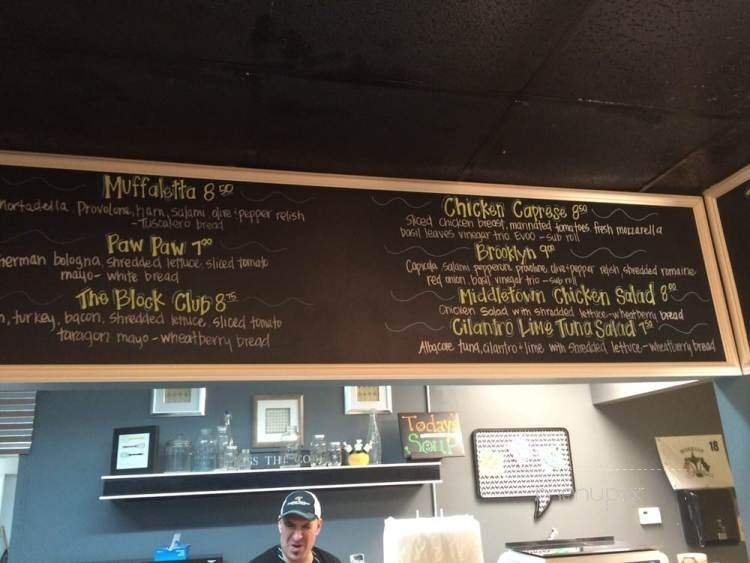 Muffaletta 8 50
Mortadella, Provolone, ham, salami, olive + pepper relish
-Tuscalero bread
Paw Paw 7 00
herman bologna, shredded lettuce, sliced tomato
mayo - white bread
The Block Club 8 75
, turkey, bacon, shredded lettuce, sliced tomato
taragon mayo - wheatberry bread
Chicken Caprese 8 50
Sliced chicken breast, marinated tomatoes, fresh mozzarella
basil leaves vinegar trio EVOO - sub roll
Brooklyn 9 00
Capicola, salami, pepperoni, provolone, olive + pepper relish, shredded romaine
red onion, basil, vinegar trio - sub roll
Middletown Chicken Salad 8 00
Chicken Salad with shredded lettuce - wheatberry bread
Cilantro Lime Tuna Salad 7 50
Albacore tuna, cilantro + lime with shredded lettuce - wheatberry bread
Today's
Soup
SS THE CO
18